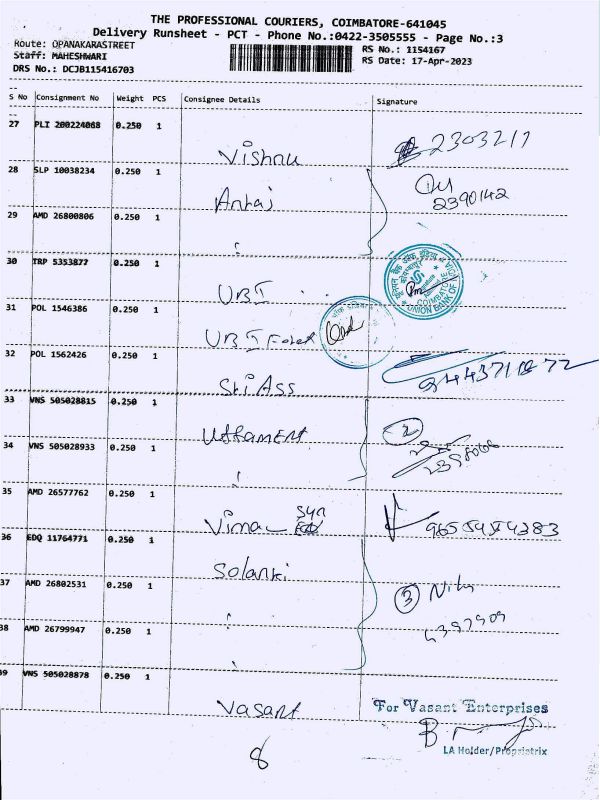 THE PROFESSIONAL COURIERS, COIMBATORE-641045
Delivery Runsheet - PCT - Phone No.:0422-3505555 - Page No.:3
Route: OPANAKARASTREET
Staff: MAHESHWARI
DRS No.: DCJB115416703
RS No.: 1154167
RS Date: 17-Apr-2023
S No Consignment No Weight PCS Consignee Details Signature
27 PLI 200224068 0.250 1
Vishnu 2303217
28 SLP 10038234 0.250 1
2390142
29 AMD 26800806 0.250 1
30 TRP 5353877 0.250 1
UBI
COIMBATORE
UNION BANK OF
31 POL 1546386 0.250 1
UBI
32 POL 1562426 0.250 1
Sri Ass
33 VNS 505028815 0.250 1
2
34 VNS 505028933 0.250 1
35 AMD 26577762 0.250 1
Vimal
36 EDQ 11764771 0.250 1
Solanki
37 AMD 26802531 0.250 1
3
38 AMD 26799947 0.250 1
39 VNS 505028878 0.250 1
Vasant
For Vasant Enterprises
LA Holder/Propriatrix
8